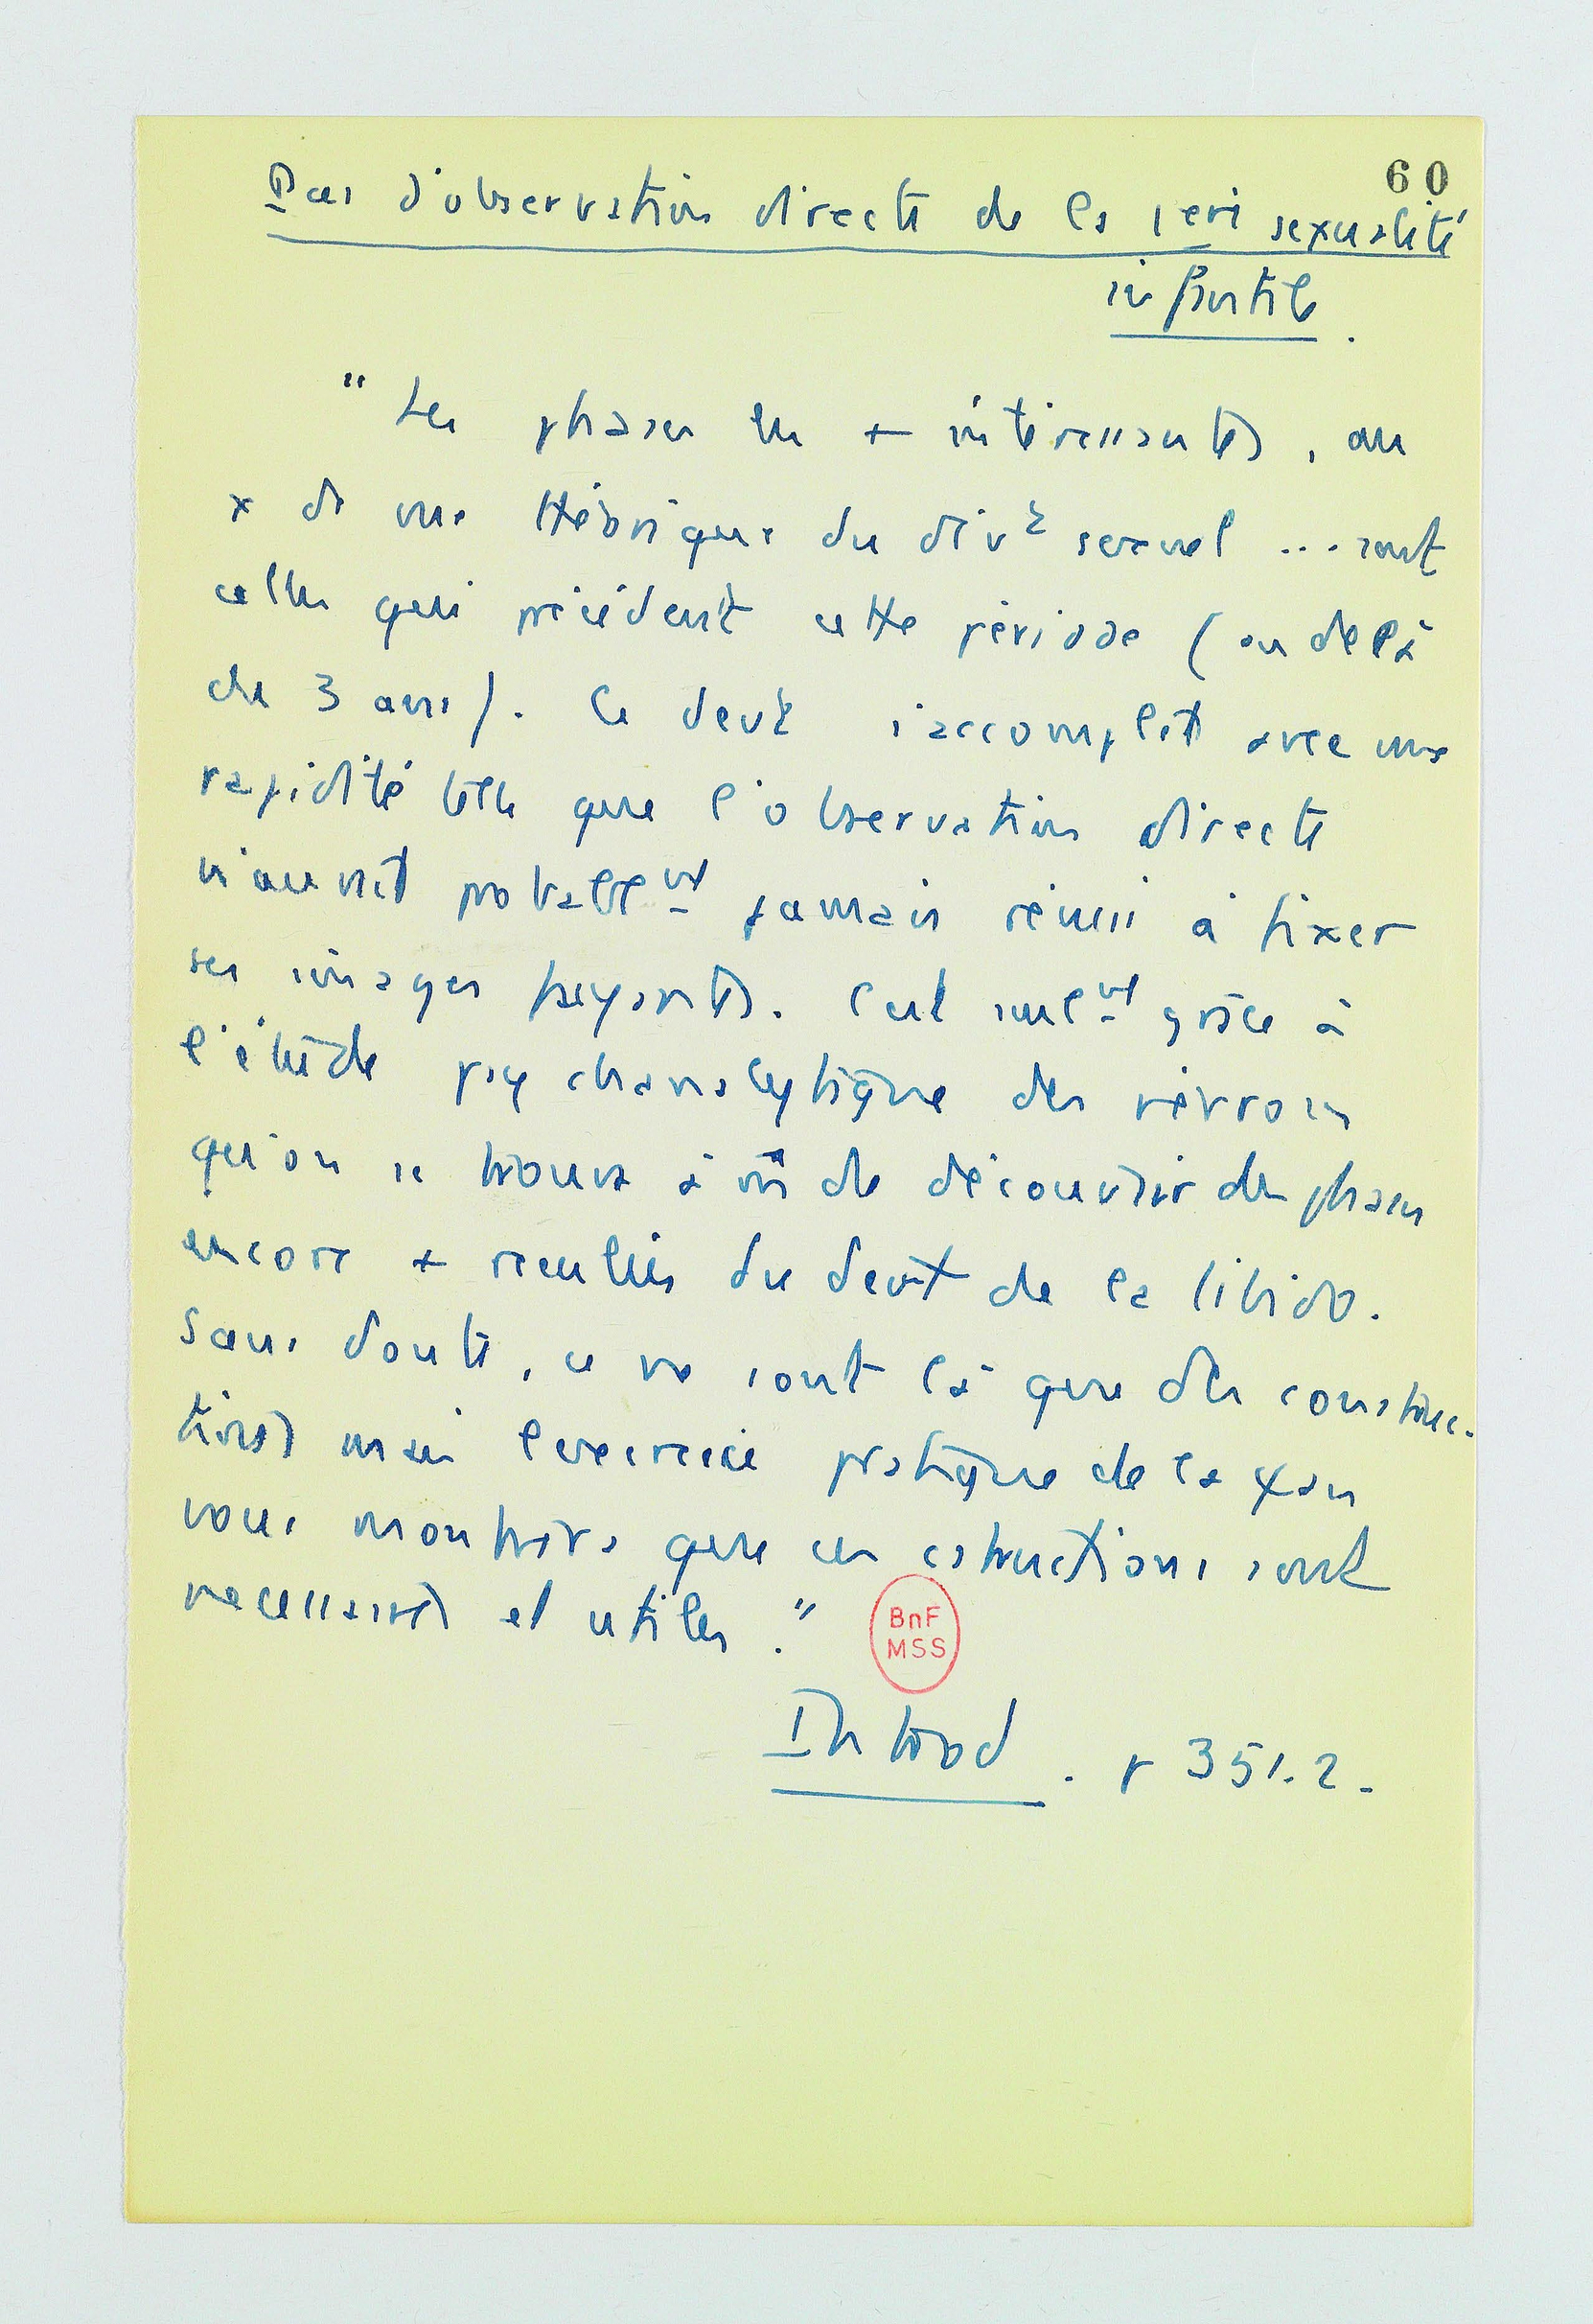 60
Pas d'observation directe de la 1ère sexualité
infantile.
"Les phases les + intéressantes, au
x de vue théorique du dévt sexuel ... sont
celles qui précèdent cette période (au delà
de 3 ans). Ce devt s'accomplit avec une
rapidité telle que l'observation directe
n'aurait probablemt jamais réussi à fixer
ses images fuyantes. C'est seulemt grâce à
l'étude psychanalytique des névroses
qu'on se trouve à m de découvrir des phases
encore + reculées du devt de la libido.
Sans doute, ce ne sont là que des construc-
tions mais l'exercice pratique de la ψan
vous montrera que ces cstructions sont
necessaires et utiles."
BnF
MSS
Introd. p 351.2.